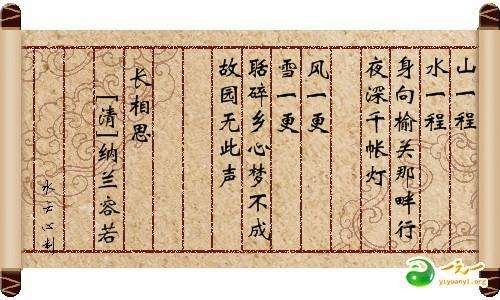 山一程
水一程
身向榆关那畔行
夜深千帐灯
风一更
雪一更
聒碎乡心梦不成
故园无此声
长相思
[清]纳兰容若
yiyuanyi.org